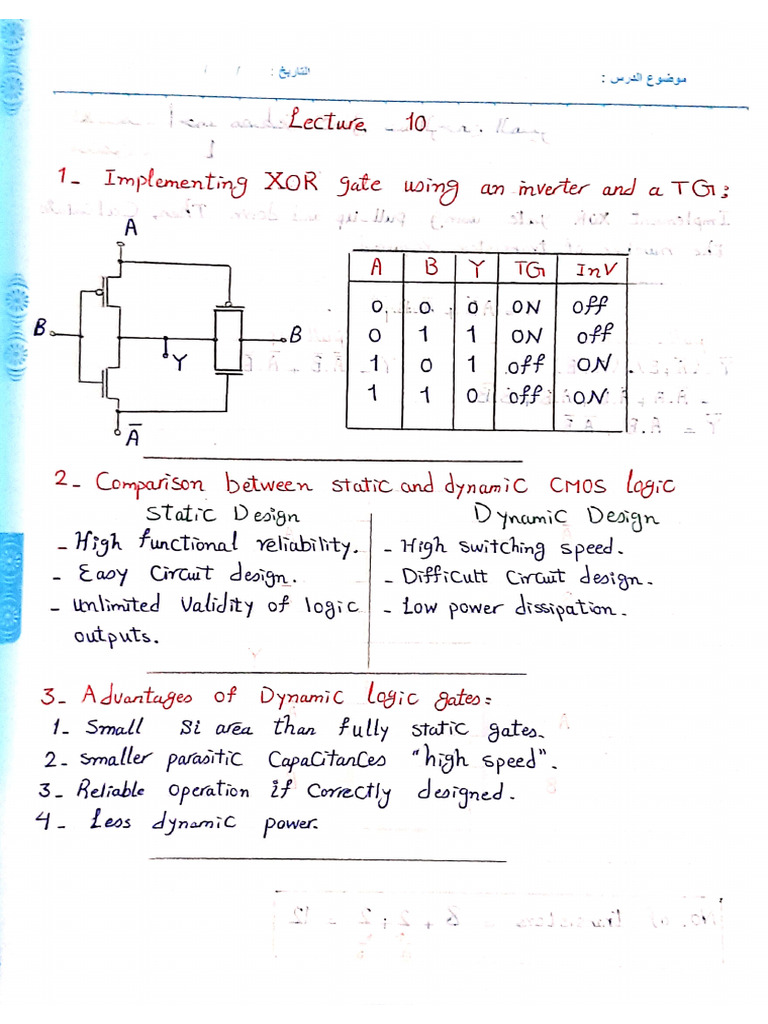 موضوع الدرس :
التاريخ : / /
Lecture 10
1- Implementing XOR gate using an inverter and a TG:
A
B
Y
B
Ā
A B Y TG InV
0 0 0 ON Off
0 1 1 ON off
1 0 1 off ON
1 1 0 off ON
2- Comparison between static and dynamic CMOS logic
Static Design
- High functional reliability.
- Easy Circuit design.
- Unlimited Validity of logic
outputs.
Dynamic Design
- High switching speed.
- Difficult Circuit design.
- Low power dissipation.
3- Advantages of Dynamic logic gates:
1- Small Si area than fully static gates.
2- Smaller parasitic Capacitances "high speed".
3- Reliable operation if correctly designed.
4- Less dynamic power.